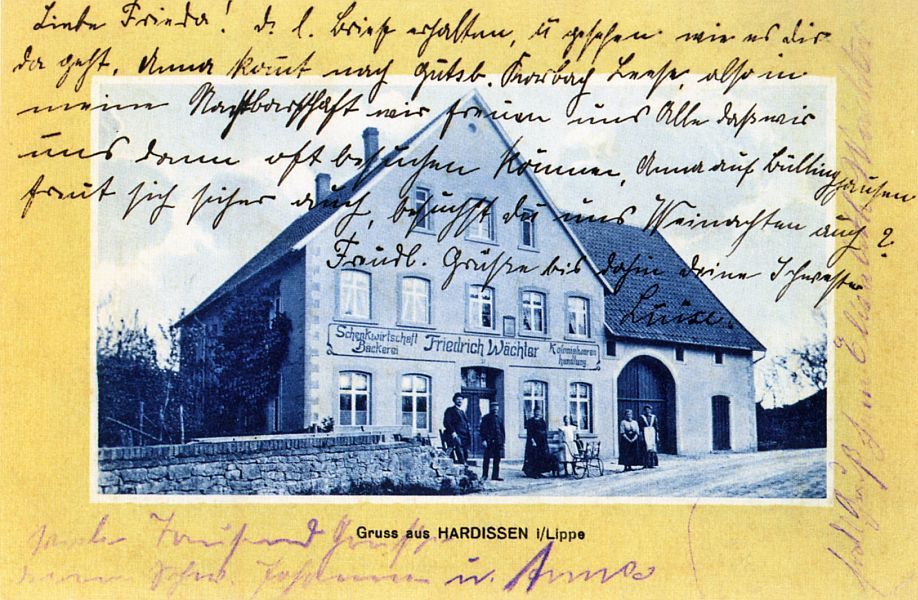 Liebe Frieda! d. l. Brief erhalten, ü gesehen wie es dir
da geht, Anna kommt nach Gutsb. Korbach Leese, also in
meine Nachbarschaft wir freuen uns Alle daß wir
uns dann oft besuchen können, Anna auf Büllinghausen
freut sich sicher auch, besuchst du uns Weinachten auch?
Freudl. Grüße bis dahin deine Schwester
Luise.
Schenkwirtschaft
Bäckerei
Friedrich Wächter
Kolonialwaren
handlung
Gruss aus HARDISSEN i/Lippe
viele Tausend Grüße
Schw. u. Anna